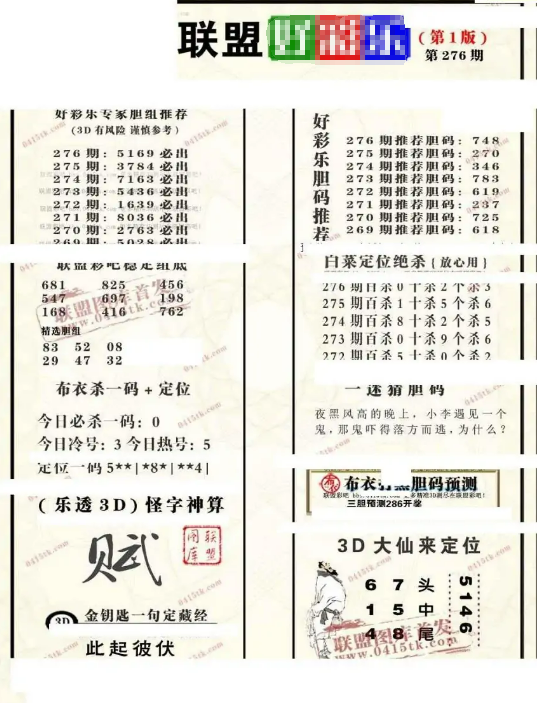 联盟好彩乐
(第1版)
第276期
好彩乐专家胆组推荐
(3D有风险 谨慎参考)
276期: 5169必出
275期: 3784必出
274期: 7163必出
273期: 5436必出
272期: 1639必出
271期: 8036必出
270期: 2763必出
269期: 5028必出
联盟彩吧稳定组底
681 825 456
547 697 198
168 416 762
精选胆组
83 52 08
29 47 32
布衣杀一码+定位
今日必杀一码: 0
今日冷号: 3 今日热号: 5
定位一码 5**|*8*|**4|
(乐透3D)怪字神算
联盟图库
3D
金钥匙一句定藏经
此起彼伏
好彩乐胆码推荐
276期推荐胆码: 748
275期推荐胆码: 270
274期推荐胆码: 346
273期推荐胆码: 783
272期推荐胆码: 619
271期推荐胆码: 237
270期推荐胆码: 725
269期推荐胆码: 618
白菜定位绝杀{放心用}
276期百杀0十杀2个杀3
275期百杀1十杀5个杀6
274期百杀8十杀2个杀5
273期百杀0十杀9个杀6
272期百杀5十杀0个杀2
一迷猜胆码
夜黑风高的晚上,小李遇见一个
鬼,那鬼吓得落方而逃,为什么?
布衣 胆码预测
三胆预测286开奖
3D大仙来定位
6 7 头
1 5 中
4 8 尾
5146
联盟图库首发
www.0415tk.com